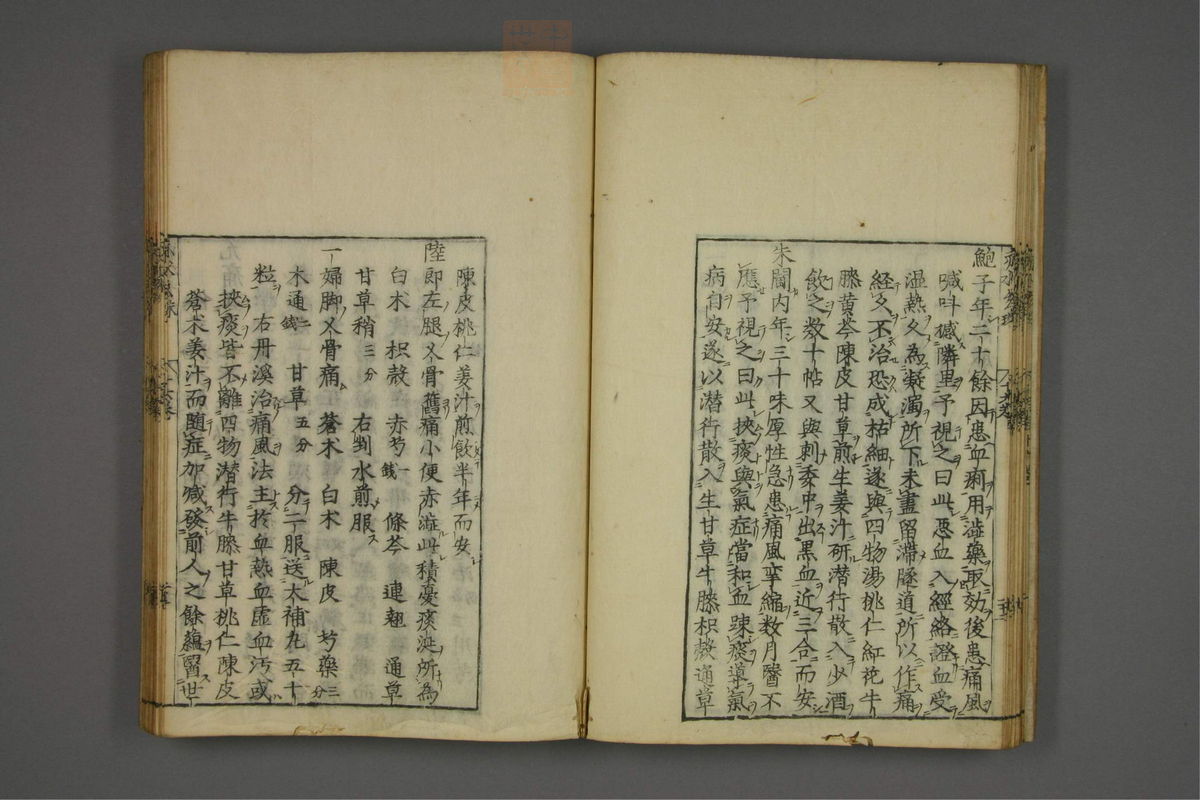 鮑子年二十餘因患血痢用澁藥取効後患痛風
喊叫撼隣里予視之曰此惡血入經絡證血受
湿熱久為凝濁所下未盡留滯隧道所以作痛
経久不治恐成枯細遂與四物湯桃仁紅花牛
膝黄芩陳皮甘草煎生姜汁研潜行散入少酒
飲之数十帖又與刺委中出黒血近三合而安
朱閫内年三十味厚性急患痛風挛縮数月醫不
應予視之曰此挾痰與氣症當和血踈痰導氣
病自安遂以潜行散入生甘草牛膝枳殻通草
陳皮桃仁姜汁煎飲半年而安
陸郎左腿叉骨舊痛小便赤澁此積憂痰涎所為
白术 枳殻 赤芍一錢 條芩 連翹 通草
甘草稍三分 右剉水煎服
一婦脚叉骨痛 蒼术 白术 陳皮 芍藥三分
木通二錢 甘草五分 分二服送大補丸五十
粒 右丹溪治痛風法主於血熱血虚血汚或
挾痰皆不離四物潜行牛膝甘草桃仁陳皮
蒼术姜汁而随症加减發前人之餘緼醫世